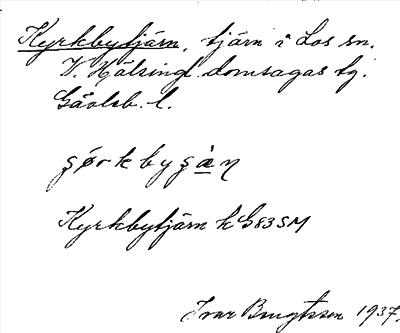 Kyrkbytjärn, tjärn i Los sn.
V. Hälsingl. domsagas tg.
Gävleb. l.
Kyrkbytjärn k G83SM
Ivar Bengtsson 1937.